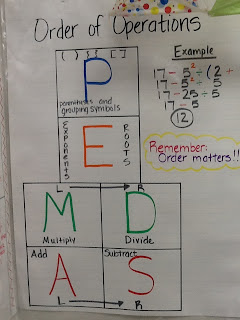 Order of Operations
( ) { } [ ]
P
parentheses and
grouping symbols
Exponents
E
ROOTS
L → R
M
Multiply
D
Divide
Add
A
Subtract
S
L → R
Example
17 - 5² ÷ (2 +
17 - 5² ÷ 5
17 - 25 ÷ 5
17 - 5
12
Remember:
Order matters!!